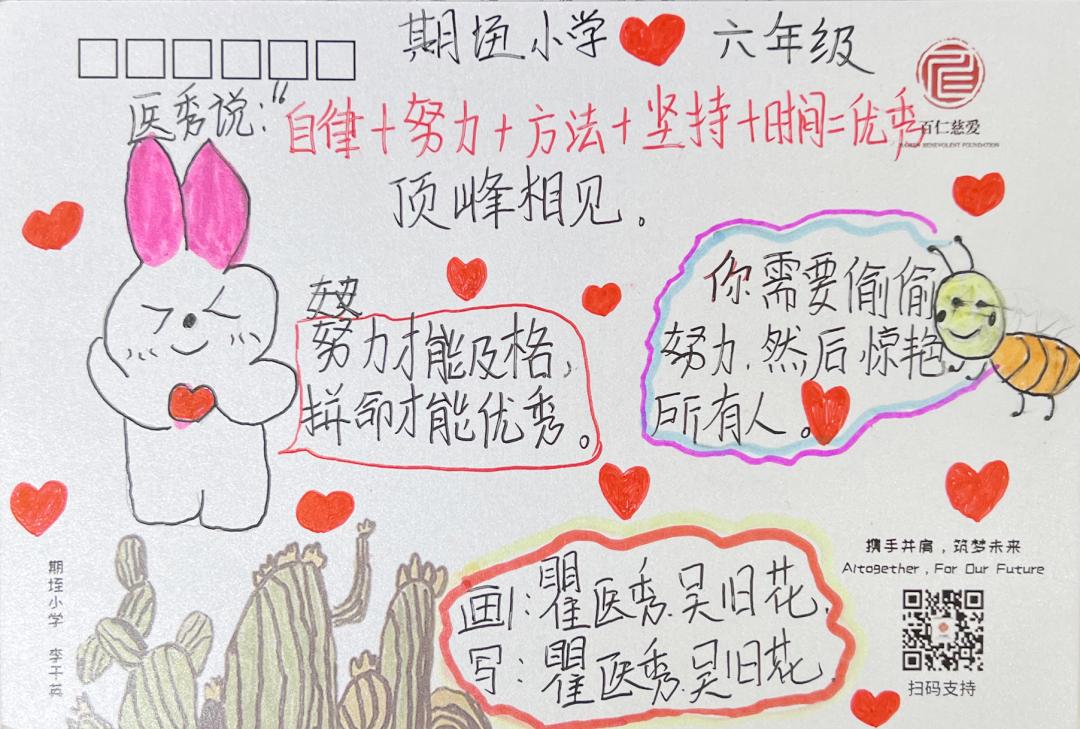 期垤小学 六年级
医秀说:“自律+努力+方法+坚持+时间=优秀
百仁慈爱
BAIREN BENEVOLENT FOUNDATION
顶峰相见。
努力才能及格,
拼命才能优秀。
你需要偷偷
努力.然后惊艳
所有人。
携手并肩,筑梦未来
Altogether, For Our Future
期垤小学 李干英
画:瞿医秀.吴旧花.
写:瞿医秀.吴旧花.
扫码支持